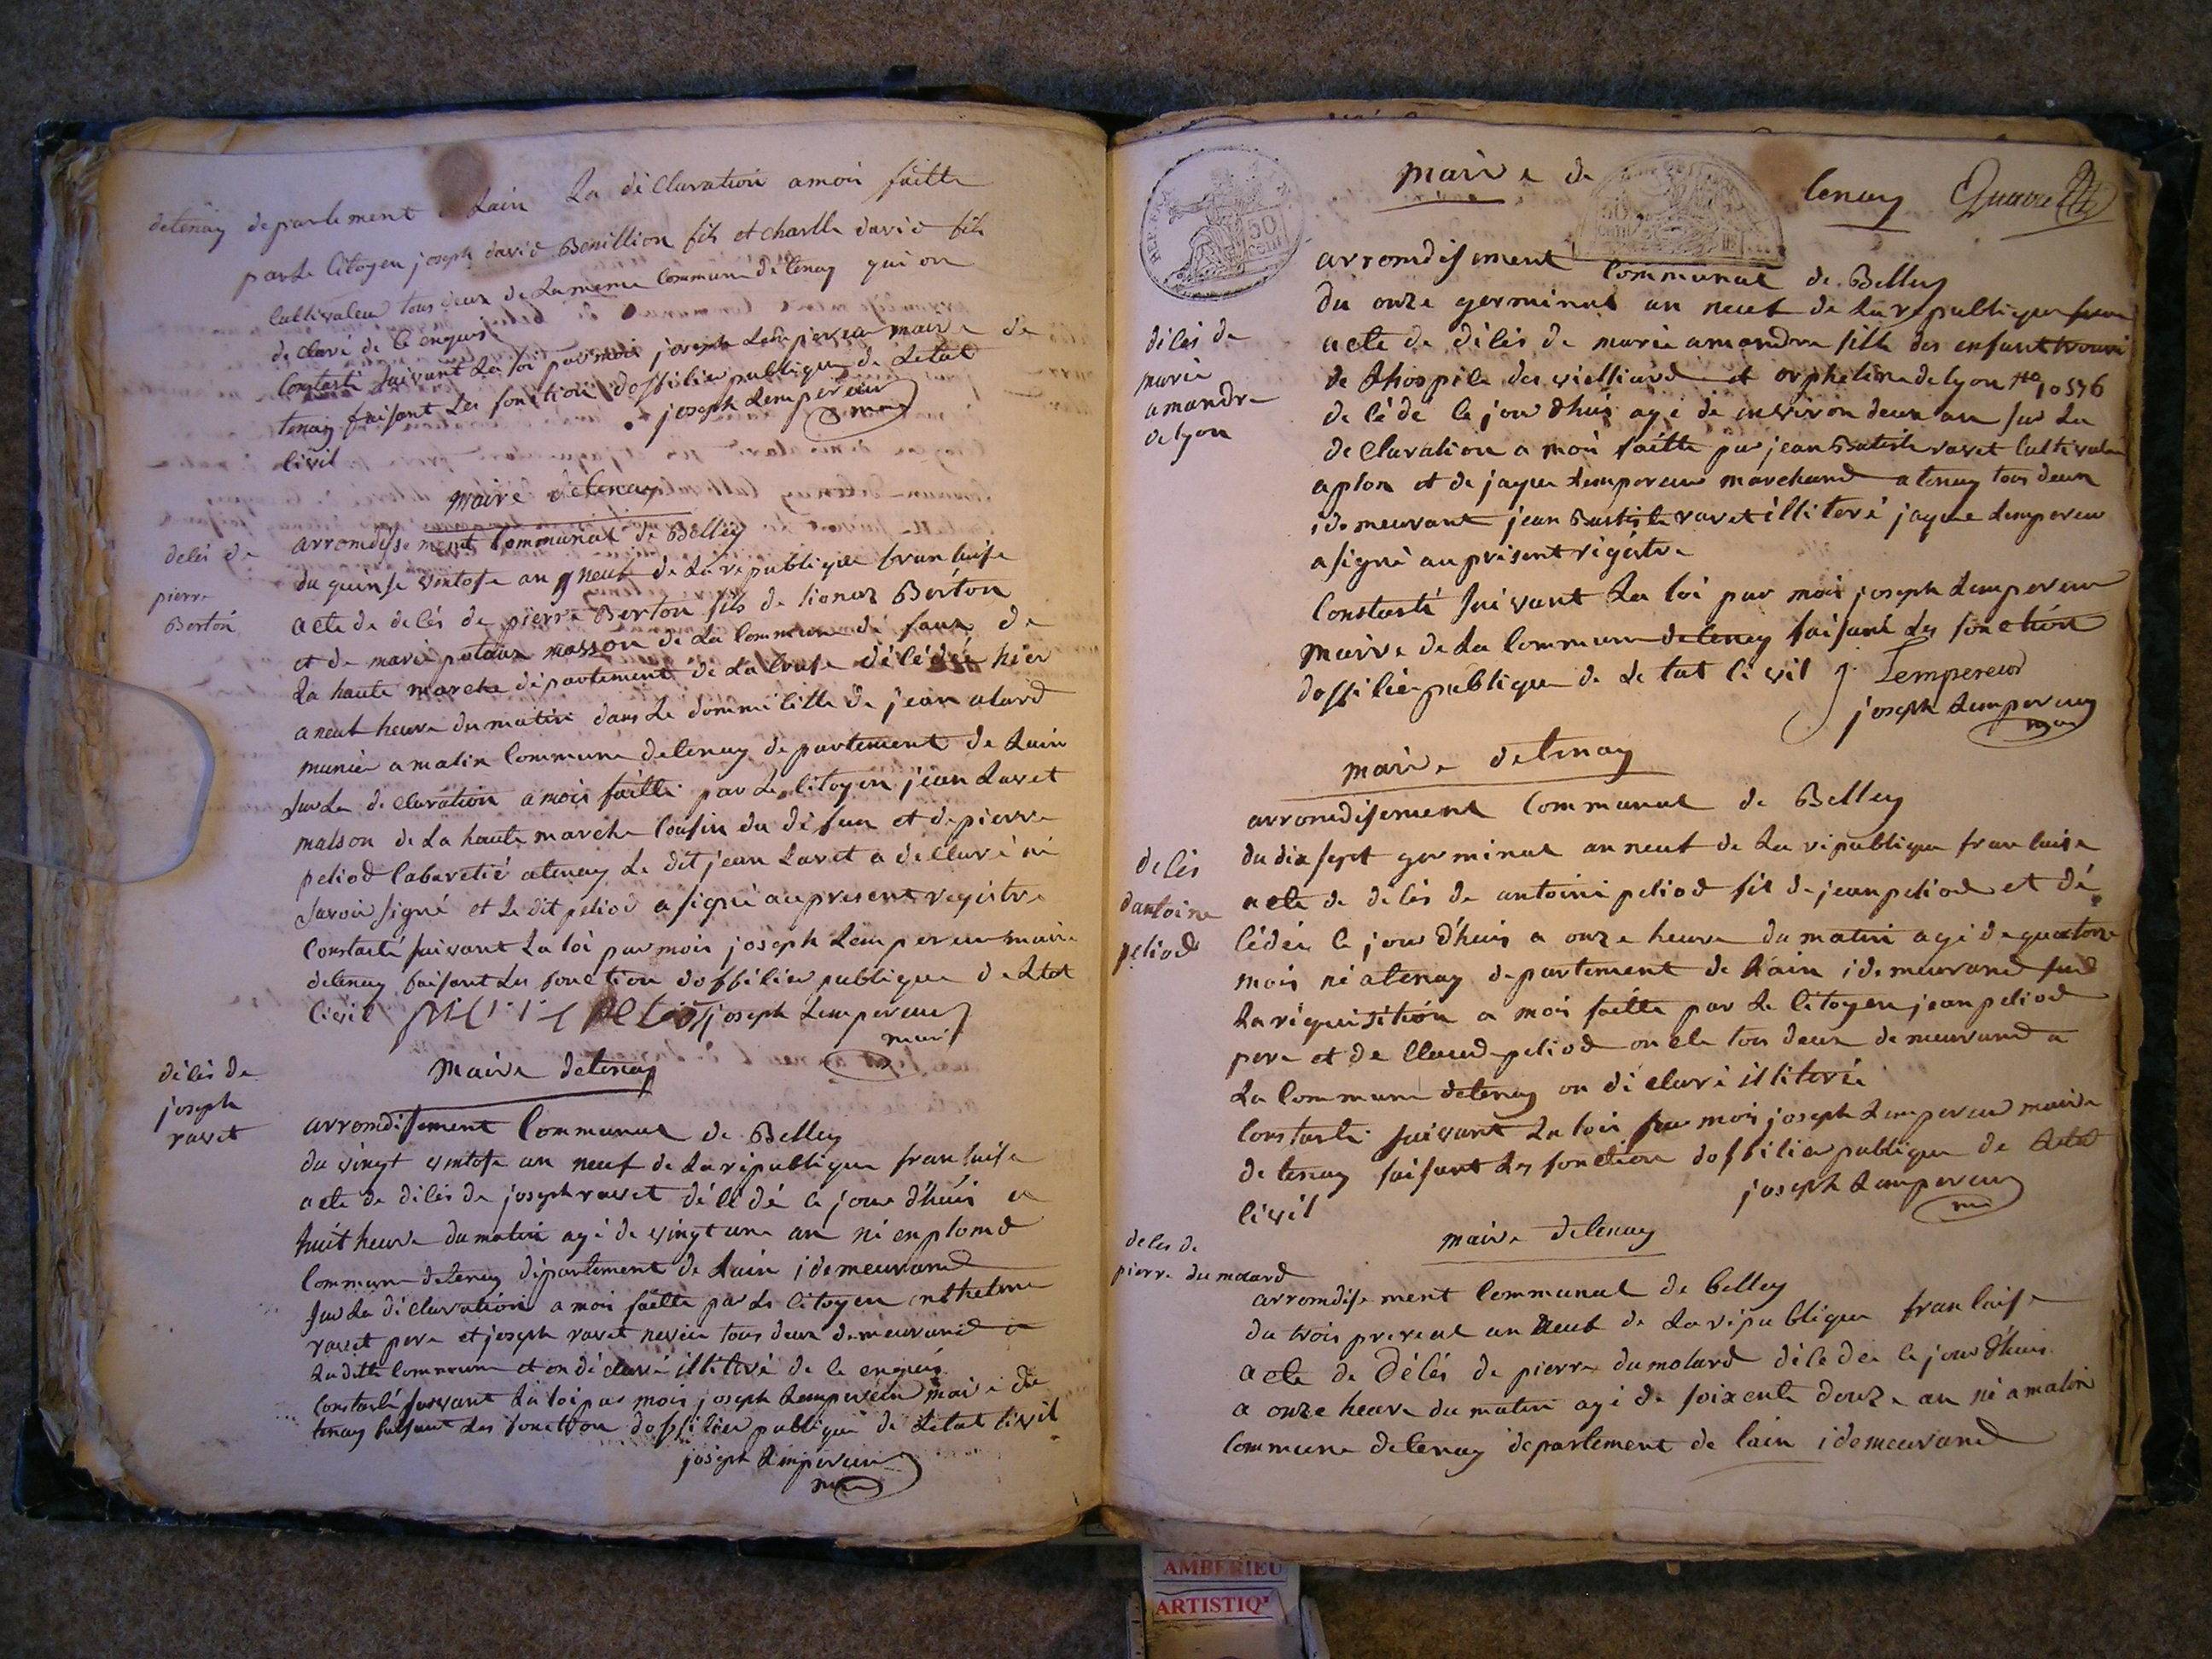 detenay departement Lain La déclaration a moi faitte
par Le Citoyen joseph david Bonillion fils et charlle david fils
Cultivateu tous deux de La meme Commune de tenay qui on
de claré de ce enquis
Constasté suivant La loi par moi joseph Lempereur maire de
tenay faisant Les fonction dofficier publique de Letat
civil joseph Lempereur
maire
maire de tenay
arromdisement Communal de Belley
delés de
pierre
Berton
du quinse ventose an neuf de La republique francaise
acte de delés de pierre Berton fils de lionar Berton
et de marie masson de La Commune de faux de
La haute marche département de La Cruse décédé hier
a neuf heure du matin dans Le dommicille de jean alard
munier a malix Commune detenay departement de Lain
sur La declaration a moi faitte par Le Citoyen jean Lavet
malson de La haute marche Cousin du défun et de pierre
peliod Cabaretié atenay Le dit jean Lavet a declaré ne
savoir signé et Le dit peliod a signé au present registre
Constasté suivant La loi par moi joseph Lempereur maire
detenay faisant Les fonction dofficier publique de Letat
civil joseph Lempereur
maire
maire detenay
délés de
joseph
ravet
arromdisement Communal de Belley
du vingt ventose an neuf de La république francaise
acte de délés de joseph ravet décédé ce jour d'huis a
huit heure du matin agé de vingt une an né en plomd
Commune detenay département de Lain i demeurand
sur La déclaration a moi faitte par Le Citoyen enthelme
ravet pere et joseph ravet neveu tous deux demeurand a
La ditte Commune et on déclaré illiteré de ce enquis
Constasté suivant La loi par moi joseph Lempereur maire de
tenay faisant Les fonction dofficier publique de Letat civil
joseph Lempereur
maire
maire de tenay
50 cent
arromdisement Communal de Belley
du onze germinal an neuf de La republique
délés de
marie
amandre
de lyon
acte de délés de marie amandre fille des enfant trouvé
de Lhospice des vielliard et orpheline de lyon No 10576
de cé dé ce jour dhuis agé de environ deux an sur La
declaration a moi faitte par jean Batiste ravet Cultivateu
a plon et de jaque Lempereur marchand a tenay tous deux
i demeurant jean Bastiste ravet illiteré jaque Lempereur
a signé au présent régistre
Constasté suivant La loi par moi joseph Lempereur
maire de La Commune detenay faisant Les fonction
dofficier publique de Le tat civil j. Lempereur
joseph Lempereur
maire
maire detenay
arromdisement Communal de Belley
du dix sept germinal an neuf de La république francaise
delés
dantoine
peliod
acte de délés de antoine peliod fils de jean peliod et dé
cédée ce jour d'huis a onze heure du matin agé de quatorze
mois né atenay departement de Lain i demeurand sur
La réquisition a moi faitte par Le Citoyen jean peliod
pere et de Claud peliod oncle tous deux demeurand a
La Commune detenay on déclaré illiteré
Constasté suivant La loi par moi joseph Lempereur maire
de tenay faisant Les fonction dofficier publique de Letat
civil joseph Lempereur
maire
maire detenay
deles de
pierre dumolard
arromdisement Communal de belley
du trois prereal an neuf de La république francaise
acte de Délés de pierre dumolard décedée ce jour d'huis
a onze heure du matin agé de soixente douze an né a malix
Commune detenay departement de lain i demeurand
AMBERIEU
ARTISTIQ'